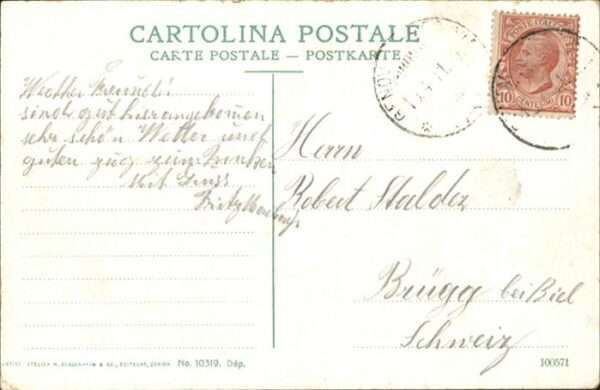 CARTOLINA POSTALE
CARTE POSTALE — POSTKARTE
Werther Freund!
sind gut hier angekomen
sehr schön Wetter und
guten zug zum
Mit Gruss
Fritz
Herrn
Robert Stalder
Brügg bei Biel
Schweiz
POSTE ITALIANE
10 CENTESIMI 10
GENOVA
No. 10319. Dép.
100571